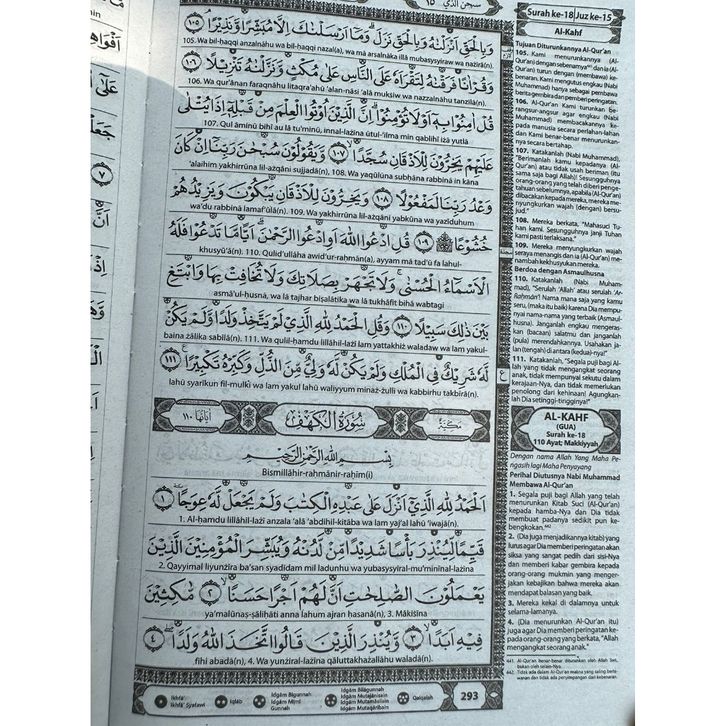 سبحن الذي ١٥
وَبِالْحَقِّ اَنْزَلْنٰهُ وَبِالْحَقِّ نَزَلَۗ وَمَآ اَرْسَلْنٰكَ اِلَّا مُبَشِّرًا وَّنَذِيْرًاۘ ١٠٥
105. Wa bil-ḥaqqi anzalnāhu wa bil-ḥaqqi nazal(a), wa mā arsalnāka illā mubasysyiraw wa nażīrā(n).
وَقُرْاٰنًا فَرَقْنٰهُ لِتَقْرَاَهٗ عَلَى النَّاسِ عَلٰى مُكْثٍ وَّنَزَّلْنٰهُ تَنْزِيْلًا ١٠٦
106. Wa qur'ānan faraqnāhu litaqra'ahū 'alan-nāsi 'alā mukṡiw wa nazzalnāhu tanzīlā(n).
قُلْ اٰمِنُوْا بِهٖٓ اَوْ لَا تُؤْمِنُوْاۗ اِنَّ الَّذِيْنَ اُوْتُوا الْعِلْمَ مِنْ قَبْلِهٖٓ اِذَا يُتْلٰى
107. Qul āminū bihī au lā tu'minū, innal-lażīna ūtul-'ilma min qablihī iżā yutlā
عَلَيْهِمْ يَخِرُّوْنَ لِلْاَذْقَانِ سُجَّدًاۙ ١٠٧ وَّيَقُوْلُوْنَ سُبْحٰنَ رَبِّنَآ اِنْ كَانَ
'alaihim yakhirrūna lil-ażqāni sujjadā(n). 108. Wa yaqūlūna subḥāna rabbinā in kāna
وَعْدُ رَبِّنَا لَمَفْعُوْلًا ١٠٨ وَيَخِرُّوْنَ لِلْاَذْقَانِ يَبْكُوْنَ وَيَزِيْدُهُمْ
wa'du rabbinā lamaf'ūlā(n). 109. Wa yakhirrūna lil-ażqāni yabkūna wa yazīduhum
خُشُوْعًا ١٠٩ قُلِ ادْعُوا اللّٰهَ اَوِ ادْعُوا الرَّحْمٰنَۗ اَيًّا مَّا تَدْعُوْا فَلَهُ
khusyū'ā(n). 110. Qulid'ullāha awid'ur-raḥmān(a), ayyam mā tad'ū fa lahul-
الْاَسْمَاۤءُ الْحُسْنٰىۚ وَلَا تَجْهَرْ بِصَلَاتِكَ وَلَا تُخَافِتْ بِهَا وَابْتَغِ
asmā'ul-ḥusnā, wa lā tajhar biṣalātika wa lā tukhāfit bihā wabtagi
بَيْنَ ذٰلِكَ سَبِيْلًا ١١٠ وَقُلِ الْحَمْدُ لِلّٰهِ الَّذِيْ لَمْ يَتَّخِذْ وَلَدًا وَّلَمْ يَكُنْ
baina żālika sabīlā(n). 111. Wa qulil-ḥamdu lillāhil-lażī lam yattakhiż waladaw wa lam yakul-
لَّهٗ شَرِيْكٌ فِى الْمُلْكِ وَلَمْ يَكُنْ لَّهٗ وَلِيٌّ مِّنَ الذُّلِّ وَكَبِّرْهُ تَكْبِيْرًا ١١١
lahū syarīkun fil-mulki wa lam yakul lahū waliyyum minaż-żulli wa kabbirhu takbīrā(n).
مكية سورة الكهف اياتها ١١٠
بِسْمِ اللّٰهِ الرَّحْمٰنِ الرَّحِيْمِ
Bismillāhir-raḥmānir-raḥīm(i)
اَلْحَمْدُ لِلّٰهِ الَّذِيْٓ اَنْزَلَ عَلٰى عَبْدِهِ الْكِتٰبَ وَلَمْ يَجْعَلْ لَّهٗ عِوَجًا ١
1. Al-ḥamdu lillāhil-lażī anzala 'alā 'abdihil-kitāba wa lam yaj'al lahū 'iwajā(n).
قَيِّمًا لِّيُنْذِرَ بَأْسًا شَدِيْدًا مِّنْ لَّدُنْهُ وَيُبَشِّرَ الْمُؤْمِنِيْنَ الَّذِيْنَ
2. Qayyimal liyunżira ba'san syadīdam mil ladunhu wa yubasysyiral-mu'minīnal-lażīna
يَعْمَلُوْنَ الصّٰلِحٰتِ اَنَّ لَهُمْ اَجْرًا حَسَنًاۙ ٢ مّٰكِثِيْنَ
ya'malūnaṣ-ṣāliḥāti anna lahum ajran ḥasanā(n), 3. Mākiṡīna
فِيْهِ اَبَدًاۙ ٣ وَّيُنْذِرَ الَّذِيْنَ قَالُوا اتَّخَذَ اللّٰهُ وَلَدًا ٤
fīhi abadā(n), 4. Wa yunżiral-lażīna qāluttakhażallāhu waladā(n).
Ikhfā'
Ikhfā' Syafawi
Iqlab
Idgām Bigunnah
Idgām Mimi
Gunnah
Idgām Bilāgunnah
Idgām Mutajānisain
Idgām Mutamāṡilain
Idgām Mutaqāribain
Qalqalah
293
Surah ke-18 Juz ke-15
Al-Kahf
Tujuan Diturunkannya Al-Qur'an
105. Kami menurunkannya (Al-
Qur'an) dengan sebenarnya dan ia (Al-
Qur'an) turun dengan (membawa) ke-
benaran. Kami mengutus engkau (Nabi
Muhammad) hanya sebagai pembawa
berita gembira dan pemberi peringatan.
106. Al-Qur'an Kami turunkan be-
rangsur-angsur agar engkau (Nabi
Muhammad) membacakannya ke-
pada manusia secara perlahan-lahan
dan Kami benar-benar menurunkannya
secara bertahap.
107. Katakanlah (Nabi Muhammad),
"Berimanlah kamu kepadanya (Al-
Qur'an) atau tidak usah beriman (itu
sama saja bagi Allah)! Sesungguhnya
orang-orang yang telah diberi penge-
tahuan sebelumnya, apabila (Al-Qur'an)
dibacakan kepada mereka, mereka me-
nyungkurkan wajah (dengan) bersu-
jud."
108. Mereka berkata, "Mahasuci Tu-
han kami. Sesungguhnya janji Tuhan
kami pasti terlaksana."
109. Mereka menyungkurkan wajah
seraya menangis dan ia (Al-Qur'an) me-
nambah kekhusyukan mereka.
Berdoa dengan Asmaulhusna
110. Katakanlah, (Nabi Muham-
mad), "Serulah 'Allah' atau serulah 'Ar-
Raḥmān'! Nama mana saja yang kamu
seru, (maka itu baik) karena Dia mempu-
nyai nama-nama yang terbaik (Asmaul-
husna). Janganlah engkau mengeras-
kan (bacaan) salatmu dan janganlah
(pula) merendahkannya. Usahakan ja-
lan (tengah) di antara (kedua)-nya!"
111. Katakanlah, "Segala puji bagi Al-
lah yang tidak mengangkat seorang
anak, tidak mempunyai sekutu dalam
kerajaan-Nya, dan tidak memerlukan
penolong dari kehinaan! Agungkan-
lah Dia setinggi-tingginya!"
AL-KAHF
(GUA)
Surah ke-18
110 Ayat; Makkiyyah
Dengan nama Allah Yang Maha Pe-
ngasih lagi Maha Penyayang
Perihal Diutusnya Nabi Muhammad
Membawa Al-Qur'an
1. Segala puji bagi Allah yang telah
menurunkan Kitab Suci (Al-Qur'an)
kepada hamba-Nya dan Dia tidak
membuat padanya sedikit pun ke-
bengkokan.⁴⁴²
2. (Dia juga menjadikannya kitab) yang
lurus agar Dia memberi peringatan akan
siksa yang sangat pedih dari sisi-Nya
dan memberi kabar gembira kepada
orang-orang mukmin yang menger-
jakan kebajikan bahwa mereka akan
mendapat balasan yang baik.
3. Mereka kekal di dalamnya untuk
selama-lamanya.
4. (Dia menurunkan Al-Qur'an itu)
juga agar Dia memberi peringatan ke-
pada orang-orang yang berkata, "Allah
mengangkat seorang anak."
441. Al-Qur'an benar-benar diturunkan oleh Allah Swt.,
bukan oleh selain-Nya.
442. Tidak ada dalam Al-Qur'an makna yang saling berla-
wanan dan tidak ada penyimpangan dari kebenaran.